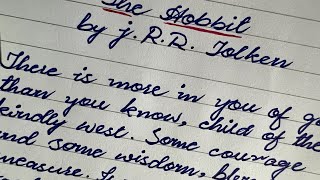 The Hobbit
by J. R. R. Tolken
There is more in you of go
than you know, child of the
kindly west. Some courage
and some wisdom, ble
measure. I